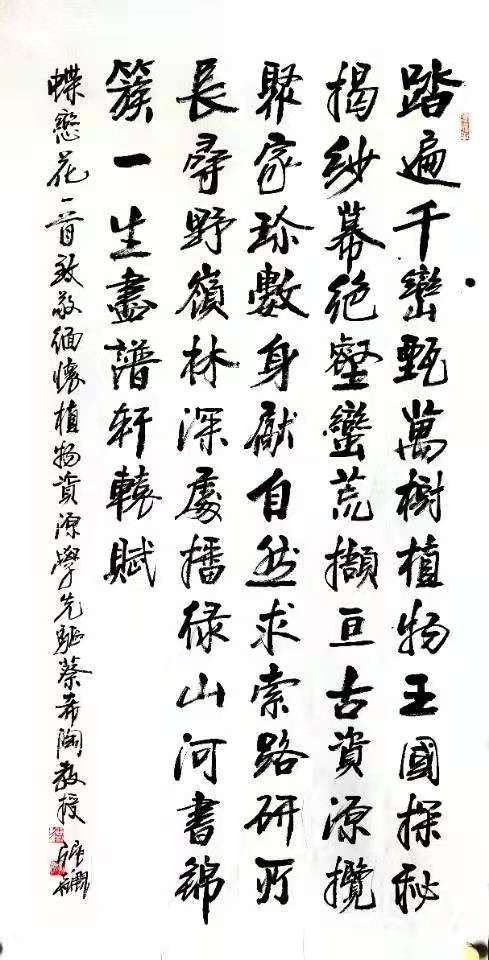 踏遍千巒甄萬樹植物王國探秘
揭紗幕絕壑蠻荒擷亘古資源攬
聚家珍數身獻自然求索路研所
長尋野嶺林深處播绿山河書錦
簇一生畫譜轩轅賦
蝶戀花一首致敬緬懷植物資源學先驅蔡希陶教授